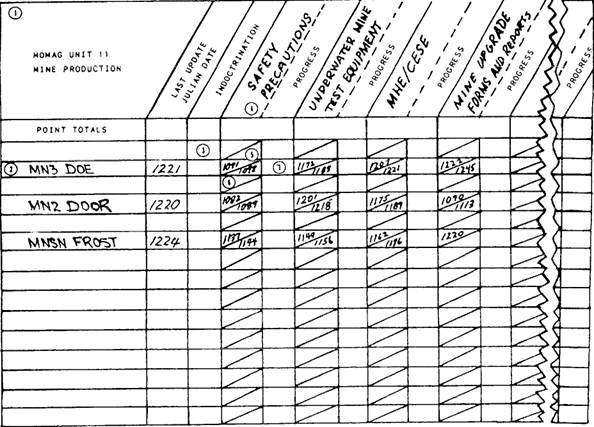 ①
MOMAG UNIT 11
MINE PRODUCTION
LAST UPDATE
JULIAN DATE
INDOCTRINATION
SAFETY
PRECAUTIONS
④
PROGRESS
UNDERWATER MINE
TEST EQUIPMENT
PROGRESS
MHE/CESE
PROGRESS
MINE UPGRADE
FORMS AND REPORTS
PROGRESS
PROGRESS
POINT TOTALS
③ ⑤
② MN3 DOE 1221 ⑦ 1221 1245
⑥
MN2 DOOR 1220 1082 1089 1201 1218 1175 1189 1090 1112
MNSN FROST 1224 1144 1149 1156 1162 1176 1220